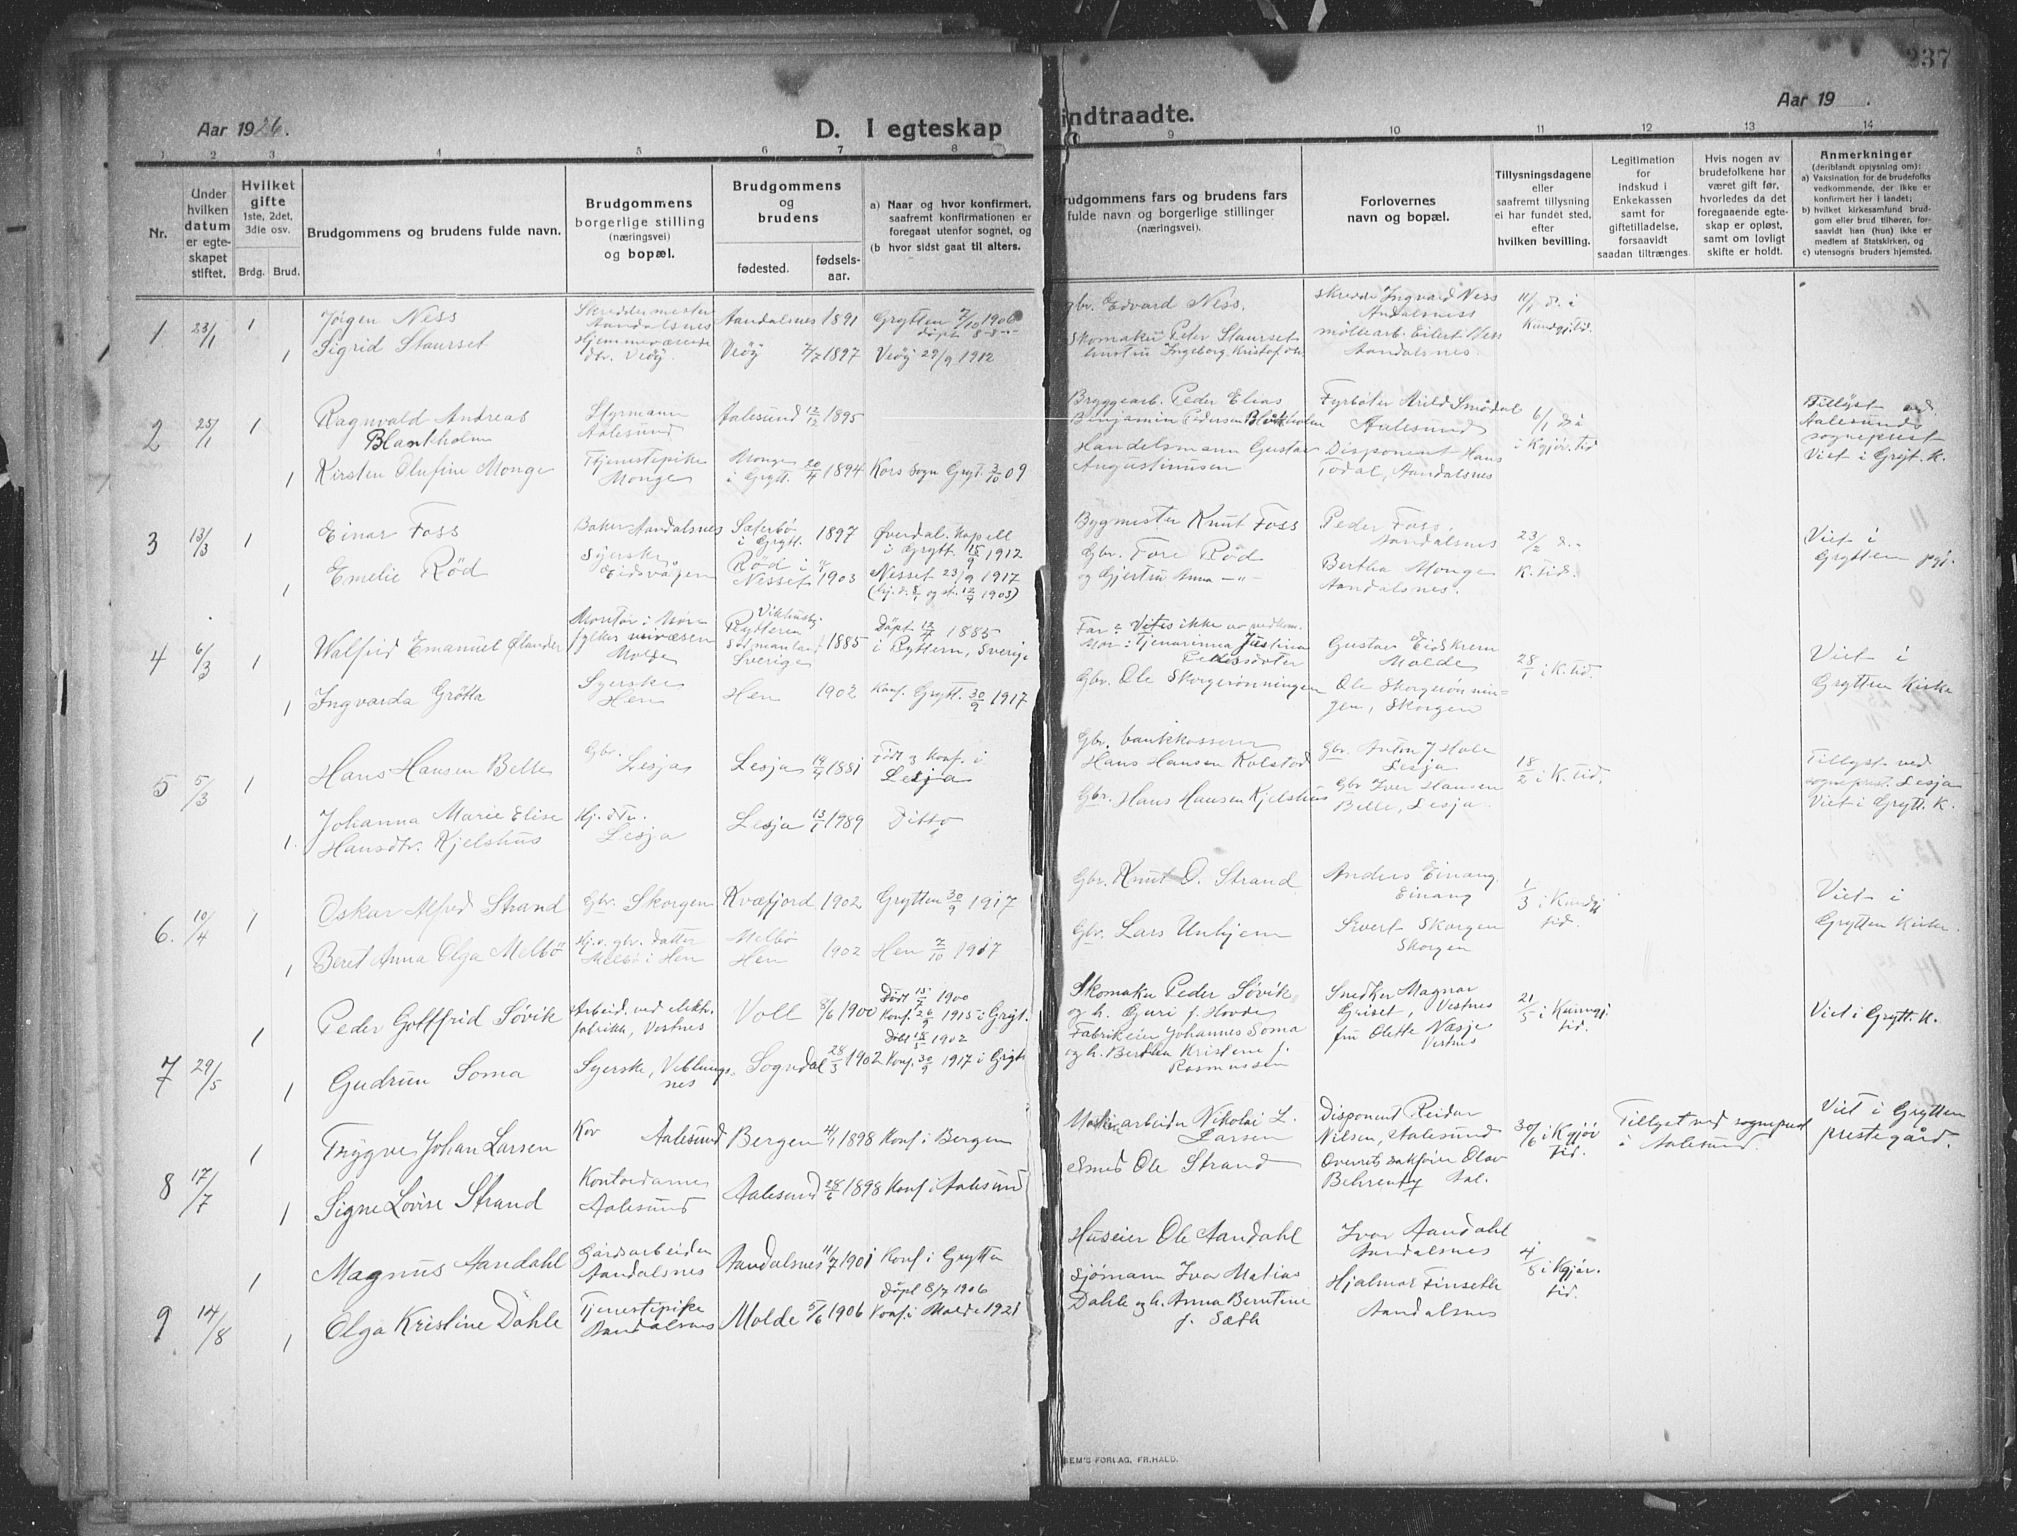 237
Aar 1926.
D. I egteskap indtraadte.
Aar 19 .
1 2 3 4 5 6 7 8 9 10 11 12 13 14
Nr.
Under hvilken datum er egteskapet stiftet.
Hvilket gifte
1ste, 2det, 3die osv.
Brdg. Brud.
Brudgommens og brudens fulde navn.
Brudgommens borgerlige stilling (næringsvei) og bopæl.
Brudgommens og brudens
fødested. fødsels-aar.
a) Naar og hvor konfirmert, saafremt konfirmationen er foregaat utenfor sognet, og
(b hvor sidst gaat til alters.
Brudgommens fars og brudens fars fulde navn og borgerlige stillinger (næringsvei).
Forlovernes navn og bopæl.
Tillysningsdagene eller saafremt tillysning ei har fundet sted, efter hvilken bevilling.
Legitimation for indskud i Enkekassen samt for giftetilladelse, forsaavidt saadan tiltrænges.
Hvis nogen av brudefolkene har været gift før, hvorledes da det foregaaende egteskap er opløst, samt om lovlig skifte er holdt.
Anmerkninger
(deriblandt opjysning om):
a) Vaksination for de brudefolks vedkommende, der ikke er konfirmert her i landet;
b) hvilket kirkesamfund brudgom eller brud tilhører, forsaavidt han (hun) ikke er medlem av Statskirken, og
c) utensogns bruders hjemsted.
1 23/1 1 Jørgen Ness Skreddermester Aandalsnes Aandalsnes 1891 Grytten 7/10 1906 døpt
Gbr. Edvard Ness. Skredder Ingvard Ness Aandalsnes 11/1 i Kundgj. tid.
1 Sigrid Staurset Hjemmeværende dtr. Veøy. Veöy 1897 Veöy 29/9 1912
Skomaker Peder Staurset hustru Ingeborg Kristofdtr. møllearb. Eilert Ness Aandalsnes.
2 25/1 1 Ragnvald Andreas Blankholm Styrmann Aalesund Aalesund 12/12 1895
Bryggearb. Peder Elias Benjamin Pedersen Blankholm Fyrbøter Aalesund 6/1 i Kgjør. tid
Tillyst ved Aalesunds sogneprest Viet i Gryt. K.
1 Kirsten Olufine Monge Tjenestepike Monge Monge i Grytt. 20/4 1894 Kors Sogn Gryt. 3/10 09
Handelsmann Gustav Augustinusen Disponent Hans Todal, Aandalsnes
3 13/3 1 Einar Foss Baker Aandalsnes Sæterbö i Grytt. 1897 Øverdal. Kapell i Grytt. 15/9 1912
Bygmester Knut Foss Peder Foss Aandalsnes 23/2 K. tid.
Viet i Grytten
1 Emelie Röd Syerske Eidsvågen Röd i Nesset 1903 Nesset 23/9 1917
Gbr. Tore Röd og Gjertru Anna —"— Bertha Monge Aandalsnes.
4 6/3 1 Walfrid Emanuel Ølander Montør i Møre fylkes Molde Rytteren Södmanland Sverige 1885 Döpt 12/7 1885 i Ryttern, Sverige
Far: Vites ikke Mor: Tjenarinna Justina Pedersdoter Gustav Eidskrem Molde 28/1 i K. tid.
Viet i Grytten Kirke
1 Ingvarda Grötta Syerske Hen Hen 1902 Konf. Grytt. 30/9 1917
Gbr. Ole Skorgerönningen Ole Skorgerönningen, Skorgen
5 5/3 1 Hans Hansen Belle Gbr. Lesja Lesja 1881 Födt & Konf. i Lesja
Gbr. bankkasserer Hans Hansen Kolstad Gbr Anton J Lesja 18/2 i K. tid.
Tillyst ved sogneprest. Lesja Viet i Grytt. K.
1. Johanna Marie Elise Hansdtr. Kjelshus Hj. dtr. Lesja Lesja 1989 Ditto
Gbr. Hans Hansen Kjelshus Gbr Iver Hansen Belle, Lesja.
6. 10/4 1 Oskar Alfred Strand Gbr. Skorgen Kvæfjord 1902 Grytten 30/9 1917
Gbr. Knut O. Strand Anders Einang Einang 1/3 i Kundgj tid.
Viet i Grytten Kirke.
1 Beret Anna Olga Melbö Hj. v. gbr. datter Melbö i Hen Melbö Hen 1902 Hen 7/10 1917
Gbr. Lars Unhjem Sivert Skorgen Skorgen
7 29/5 1 Peder Gottfrid Sövik Arbeid. ved elektr. fabrikk, Vestnes Voll 8/6 1900 Døpt 15/7 1900 Konf. 26/9 1915 i Gryt.
Skomaker Peder Søvik og h. Guri f. Hovde Snedker Magnar Griset, Vestnes 21/5 i Kunngj. tid.
Viet i Grytt. K.
1 Gudrun Soma Syerske, Veblungsnes Sogndal 28/3 1902 Döbt 18/5 1902 Konf. 30/9 1917 i Gryt
Fabrikeier Johannes Soma og h. Berthe Kristene f. Rasmussen fru Olette Næsje Vestnes
8 17/7 1 Trygve Johan Larsen Aalesund Bergen 4/1 1898 Konf. i Bergen
Maskinarbeider Nikolai L. Larsen Disponent Reidar Nilsen, Aalesund 30/6 i Kgjør tid.
Tillyst ved sogneprest i Aalesund.
Viet i Grytten prestegård.
1 Signe Lovise Strand Kontordame Aalesund Aalesund 28/6 1898 Konf i Aalesund
Ole Strand Overretssakfører Olav Behrentz Aal.
9 14/8 1 Magnus Aandahl Gårdsarbeider Aandalsnes Aandalsnes 11/7 1901 Konf. i Grytten
Huseier Ole Aandahl Ivar Aandahl Aandalsnes 4/8 i Kgjør. tid.
1 Olga Kristine Dahle Tjenestepike Aandalsnes Molde 5/6 1906 Døpt 8/7 1906 Konf. i Molde 1921
Sjømann Iver Matias Dahle og h. Anna Berntine f. Sæth Hjalmar Finseth Aandalsnes
SEM'S FORLAG, FR.HALD.